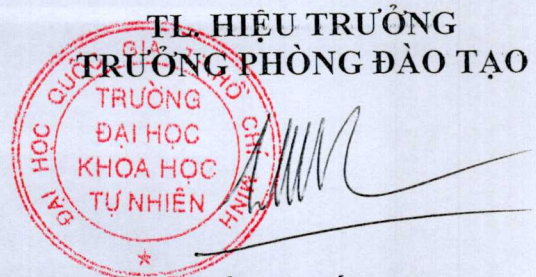 TL. HIỆU TRƯỞNG
TRƯỞNG PHÒNG ĐÀO TẠO
ĐẠI HỌC QUỐC GIA T HỒ CHÍ MINH
TRƯỜNG
ĐẠI HỌC
KHOA HỌC
TỰ NHIÊN